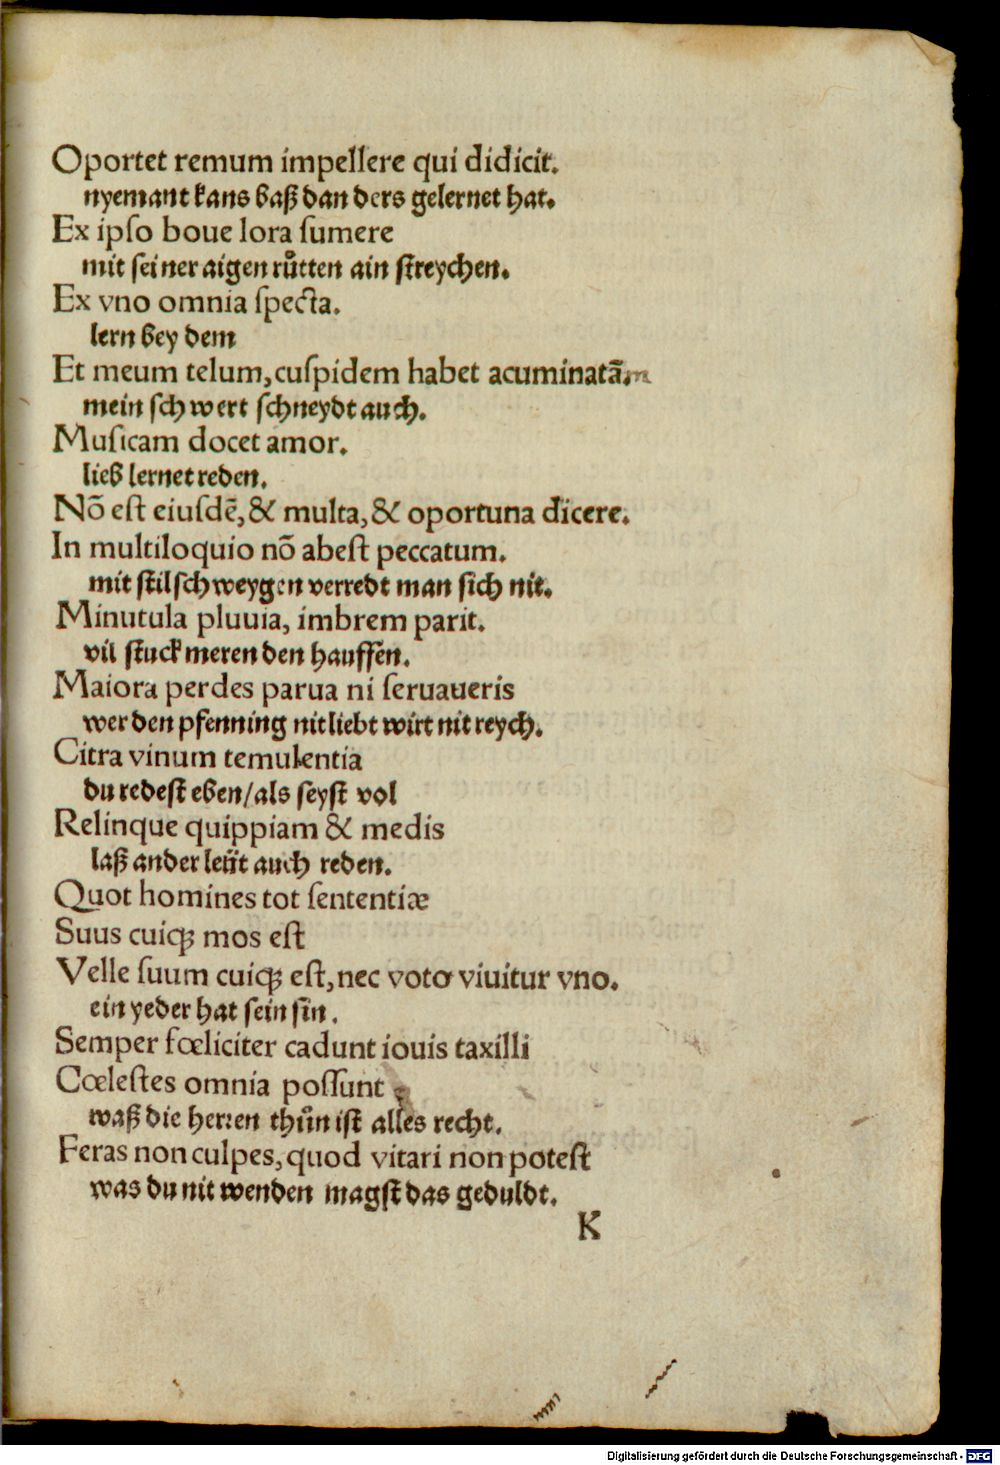 Oportet remum impellere qui didicit.
nyemant kans baß dan ders gelernet hat.
Ex ipſo boue lora ſumere
mit ſeiner aigen růtten ain ſtreychen.
Ex vno omnia ſpecta.
lern bey dem
Et meum telum, cuſpidem habet acuminatã.m
mein ſchwert ſchneydt auch.
Muſicam docet amor.
lieb lernet reden.
Nõ eſt eiuſdẽ, & multa, & oportuna dicere.
In multiloquio nõ abeſt peccatum.
mit ſtilſchweygen verredt man ſich nit.
Minutula pluuia, imbrem parit.
vil ſtuck meren den hauffen.
Maiora perdes parua ni ſeruaueris
wer den pfenning nit liebt wirt nit reych.
Citra vinum temulentia
du redeſt eben/als ſeyſt vol
Relinque quippiam & medis
laß ander leüt auch reden.
Quot homines tot ſententiæ
Suus cuiqꝫ mos eſt
Velle ſuum cuiqꝫ eſt, nec voto viuitur vno.
ein yeder hat ſein ſin̄.
Semper fœliciter cadunt iouis taxilli
Cœleſtes omnia poſſunt
waß die herren thůn iſt alles recht.
Feras non culpes, quod vitari non poteſt
was du nit wenden magſt das geduldt.
K
Digitalisierung gefördert durch die Deutsche Forschungsgemeinschaft - DFG